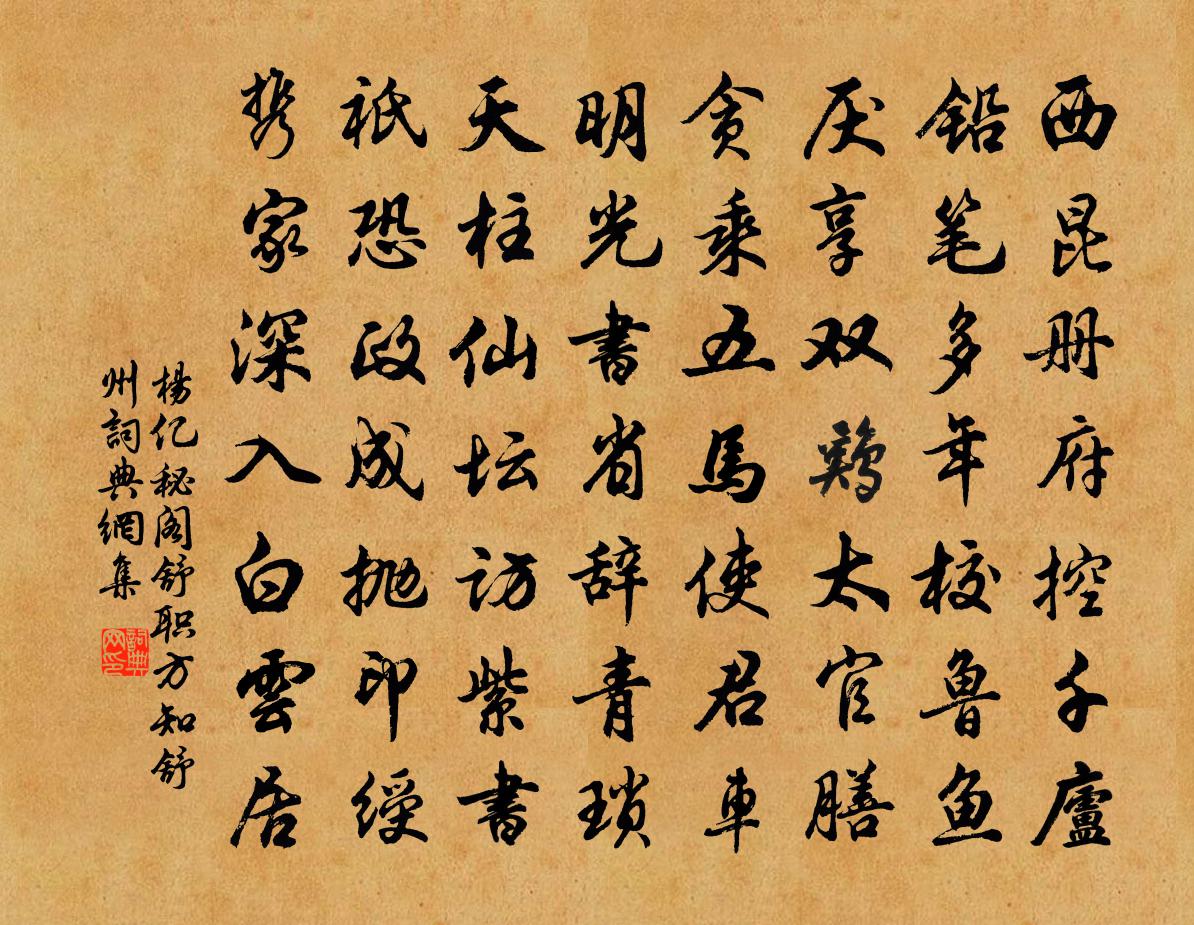 西昆册府控千廬
铅笔多年校鲁鱼
厌享双鷄太官膳
贪乘五馬使君車
明光書省辞青琐
天柱仙坛访紫書
祇恐政成抛印绶
携家深入白雲居
楊亿秘阁舒职方知舒
州詞典網集
詞典网印